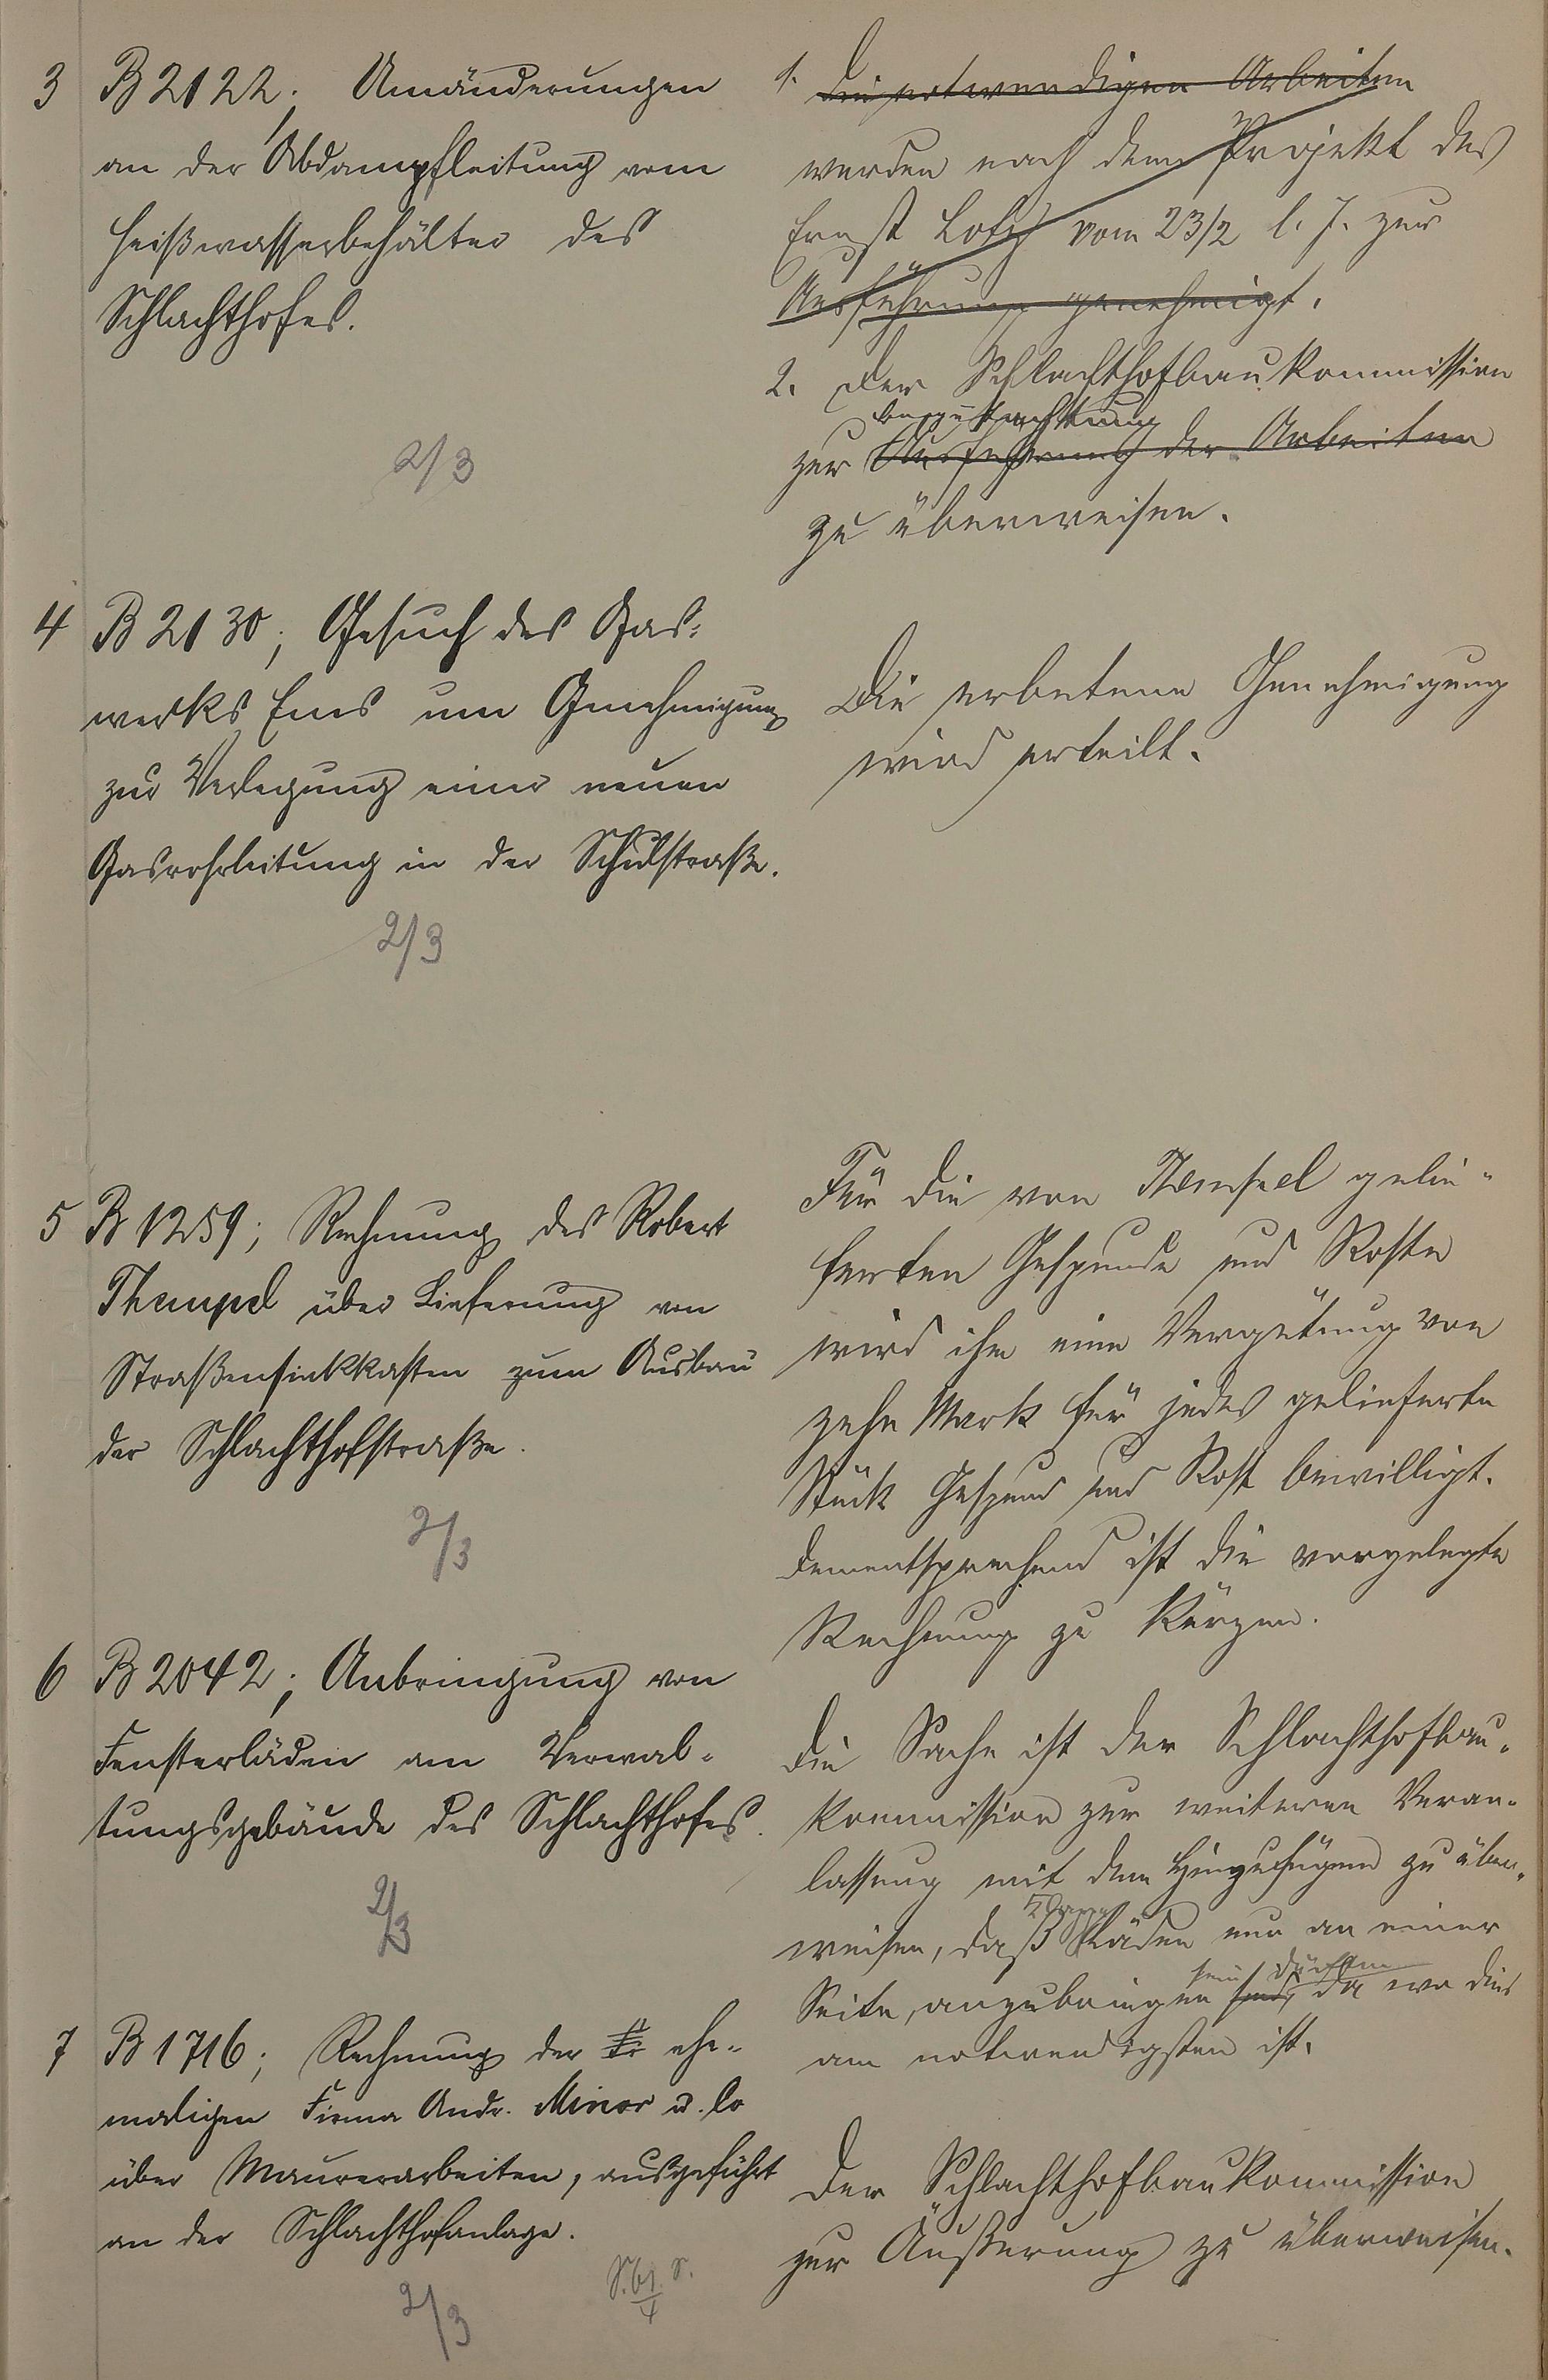 3 B 2122. Umänderungen
an der Abdampfleitung vom
Heißwasserbehälter des
Schlachthofes.
2/3
1. Die notwendigen Arbeiten
werden nach dem Projekt des
Ernst Lotz vom 23/2 l. J. zur
Ausführung genehmigt.
2. Der Schlachthofbaukommission
Begutachtung
zur Ausführung der Arbeiten
zu überweisen.
4 B 2130; Gesuch des Gas=
werks Ems um Genehmigung
zur Verlegung einer neuen
Gasrohrleitung in der Schulstraße.
2/3
Die erbetene Genehmigung
wird erteilt.
5 B 1259; Rechnung des Robert
Theupel über Lieferung von
Straßensinkkasten zum Ausbau
der Schlachthofstraße.
2/3
Für die von gelie-
ferten Gespunde und Roste
wird ihm eine Vergütung von
zehn Mark für jedes gelieferte
Stück Gespund und Rost bewilligt.
Dementsprechend ist die vorgelegte
Rechnung zu kürzen.
6 B 2042; Anbringung von
Fensterläden am Verwal-
tungsgebäude des Schlachthofes.
2/3
Die Sache ist der Schlachthofbau-
kommission zur weiteren Veran-
lassung mit dem Hinzufügen zu über-
weisen, daß Läden nur an einer
sein dürften
Seite, anzubringen sind, da wo dies
am notwendigsten ist.
7 B 1716; Rechnung der Fi ehe-
maligen Firma Andr. Minor u. Co
über Maurerarbeiten, ausgeführt
an der Schlachthofanlage.
2/3
Der Schlachthofbaukommission
zur Äußerung zu überweisen.